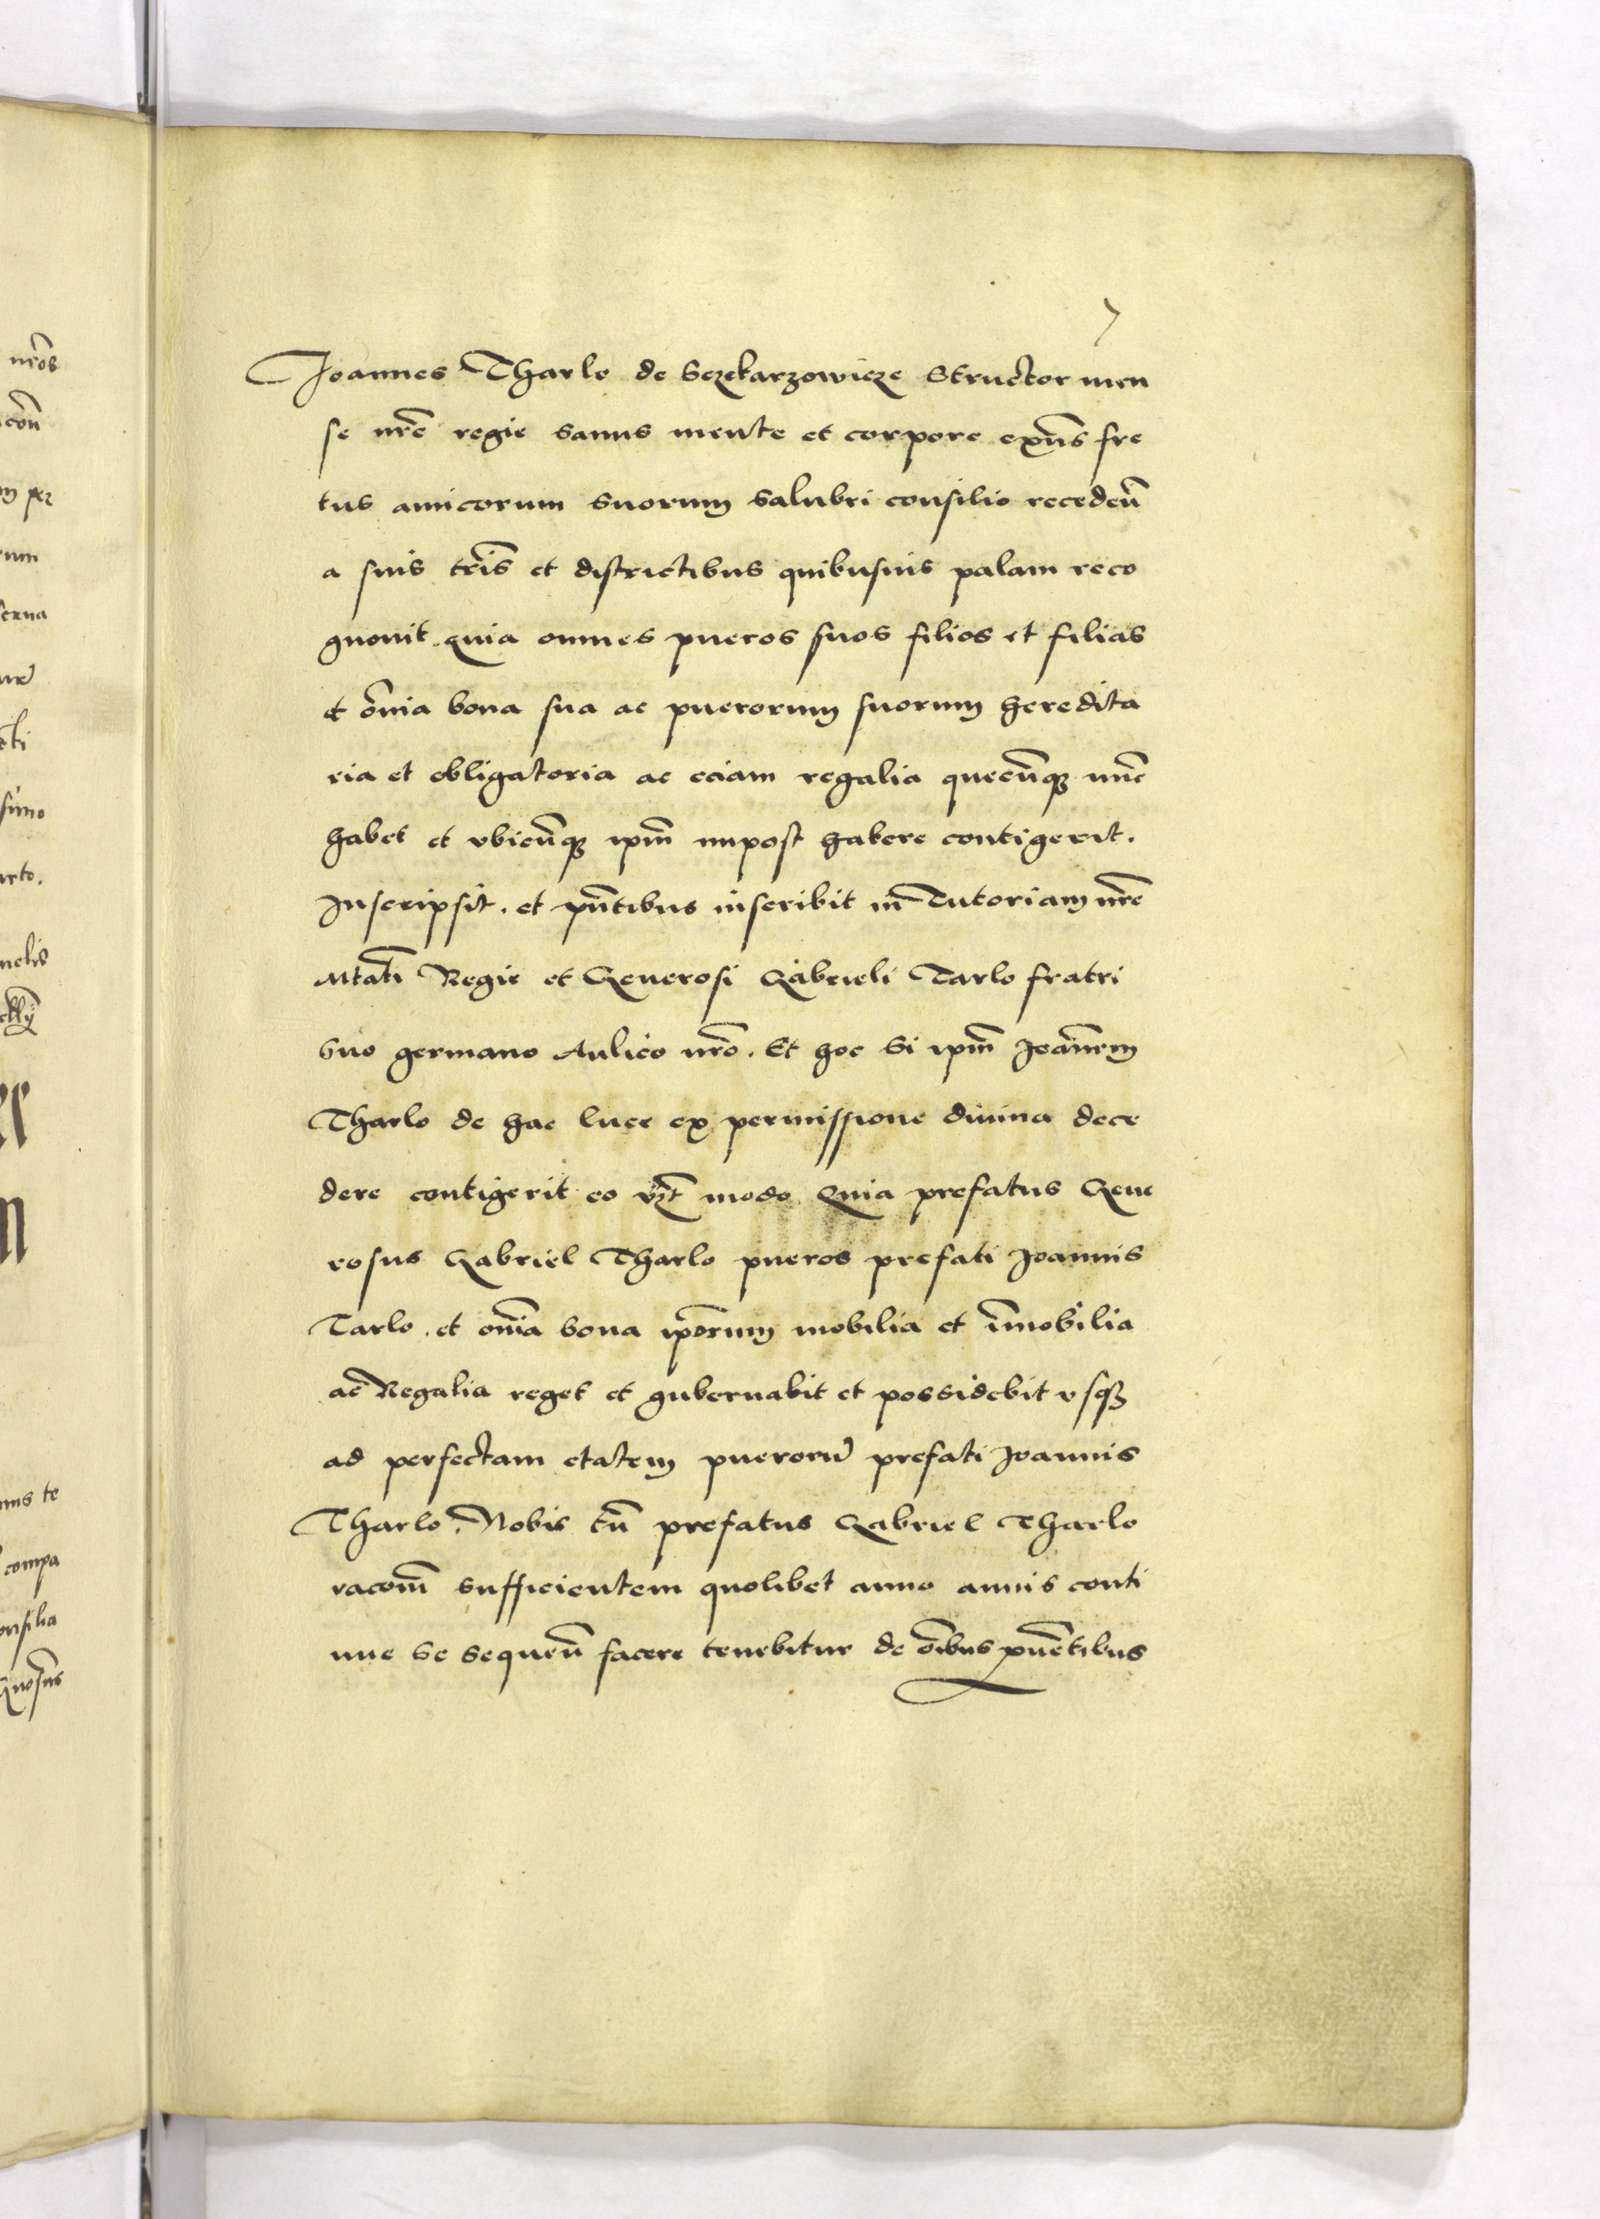 7
Joannes Tharlo de Sczekarzowicze Structor men
se nr̃e regie sanus mente et corpore exñs fre
tus amicorum suorum salubri consilio recedeñ
a suis tr̃is et districtibus quibusuis palam reco
gnouit quia omnes pueros suos filios et filias
et om̃ia bona sua ac puerorum suorum heredita
ria et obligatoria ac eciam regalia quecũq3 nũc
habet et vbicũq3 ip̃m impost habere contigerit.
Inscripsit. et pñtibus inscribit in Tutoriam nr̃e
Mtati Regie et Generosi Gabrieli Tarlo fratri
suo germano Aulico nr̃o. Et hoc si ip̃m Joãnem
Tharlo de hac luce ex permissione diuina dece
dere contigerit eo vz̃t modo Quia prefatus Gene
rosus Gabriel Tharlo pueros prefati Joannis
Tarlo. et om̃ia bona ip̃orum mobilia et im̃obilia
ac Regalia reget et gubernabit et possidebit vsq3
ad perfectam etatem puerorũ prefati Joannis
Tharlo. Nobis tñ prefatus Gabriel Tharlo
racom̃ sufficientem quolibet anno annis conti
nue se sequeñ facere tenebitur de om̃ibus puẽtibus
nr̃os
con̄
per
rum
erna
simo
arto.
nelis
nis te
compa
onsilia